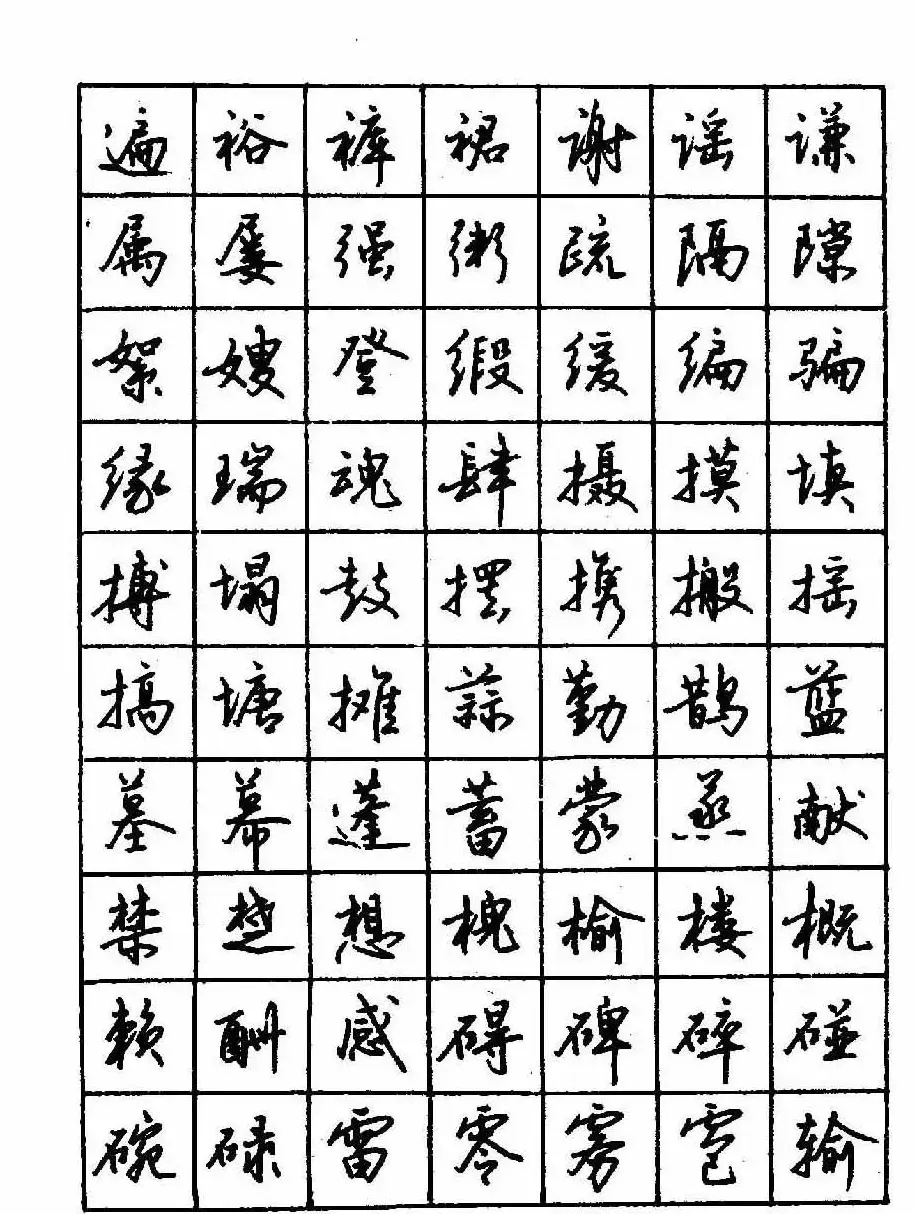 遍裕裤裙谢谣谦
属屡强粥疏隔隙
絮嫂登缎缓编骗
缘瑞魂肆摄摸填
搏塌鼓摆携搬摇
搞塘摊蒜勤鹊蓝
墓幕蓬蓄蒙蒸献
禁楚想槐榆楼概
赖酬感碍碑碎碰
碗碌雷零雾雹输